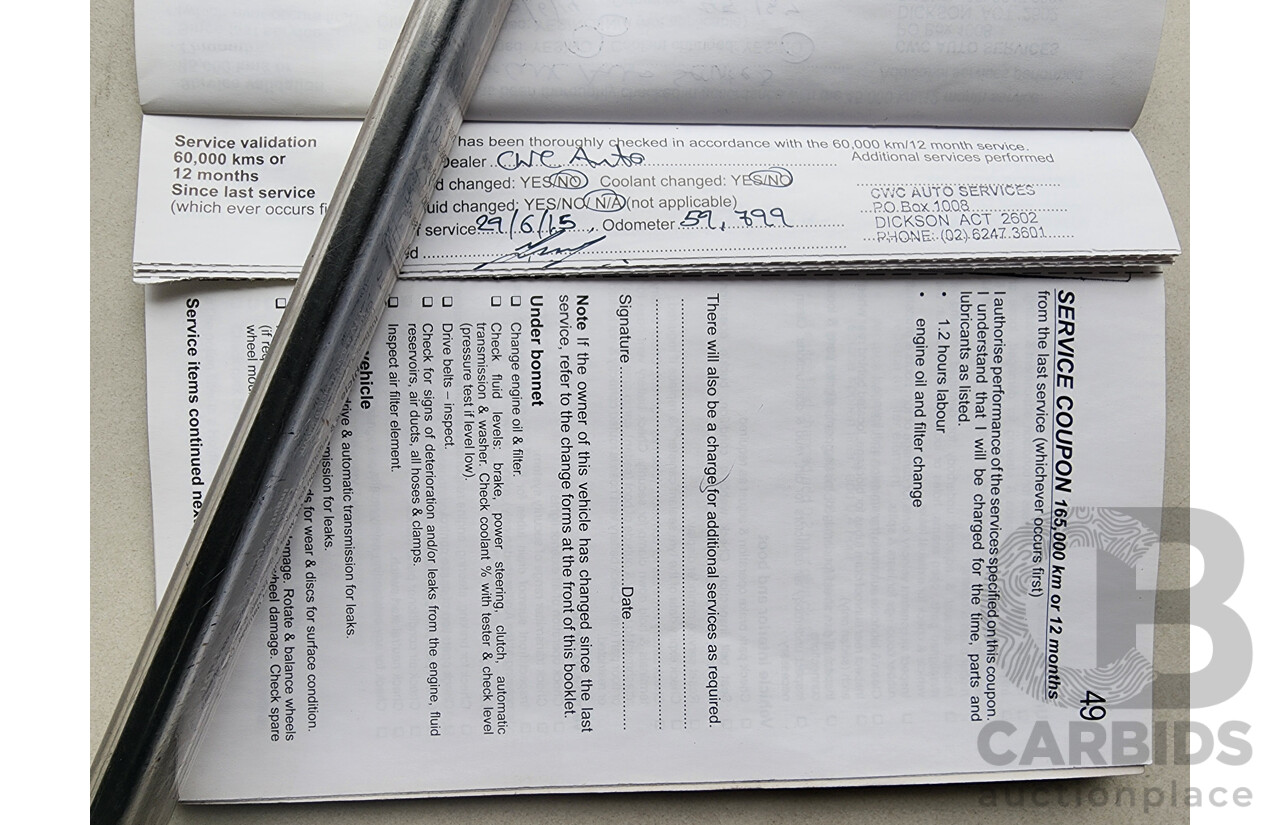 Service validation
60,000 kms or
12 months
Since last service
(which ever occurs fi
has been thoroughly checked in accordance with the 60,000 km/12 month service.
Dealer CWC Auto
Additional services performed
d changed: YES/NO Coolant changed: YES/NO
uid changed: YES/NO N/A (not applicable)
f service 29/6/15 Odometer 59,799
ed
CWC AUTO SERVICES
P.O.Box 1008
DICKSON ACT 2602
PHONE: (02) 6247 3601
49
SERVICE COUPON 165,000 km or 12 months
from the last service (whichever occurs first)
I authorise performance of the services specified on this coupon.
I understand that I will be charged for the time, parts and
lubricants as listed.
• 1.2 hours labour
• engine oil and filter change
There will also be a charge for additional services as required.
Signature Date
Note If the owner of this vehicle has changed since the last
service, refer to the change forms at the front of this booklet.
Under bonnet
❑ Change engine oil & filter.
❑ Check fluid levels: brake, power steering, clutch, automatic
transmission & washer. Check coolant % with tester & check level
(pressure test if level low).
❑ Drive belts – inspect.
❑ Check for signs of deterioration and/or leaks from the engine, fluid
reservoirs, air ducts, all hoses & clamps.
❑ Inspect air filter element.
vehicle
drive & automatic transmission for leaks.
mission for leaks.
s for wear & discs for surface condition.
mage. Rotate & balance wheels
(if req
heel damage. Check spare
wheel mo
Service items continued nex
CARBIDS
auctionplace